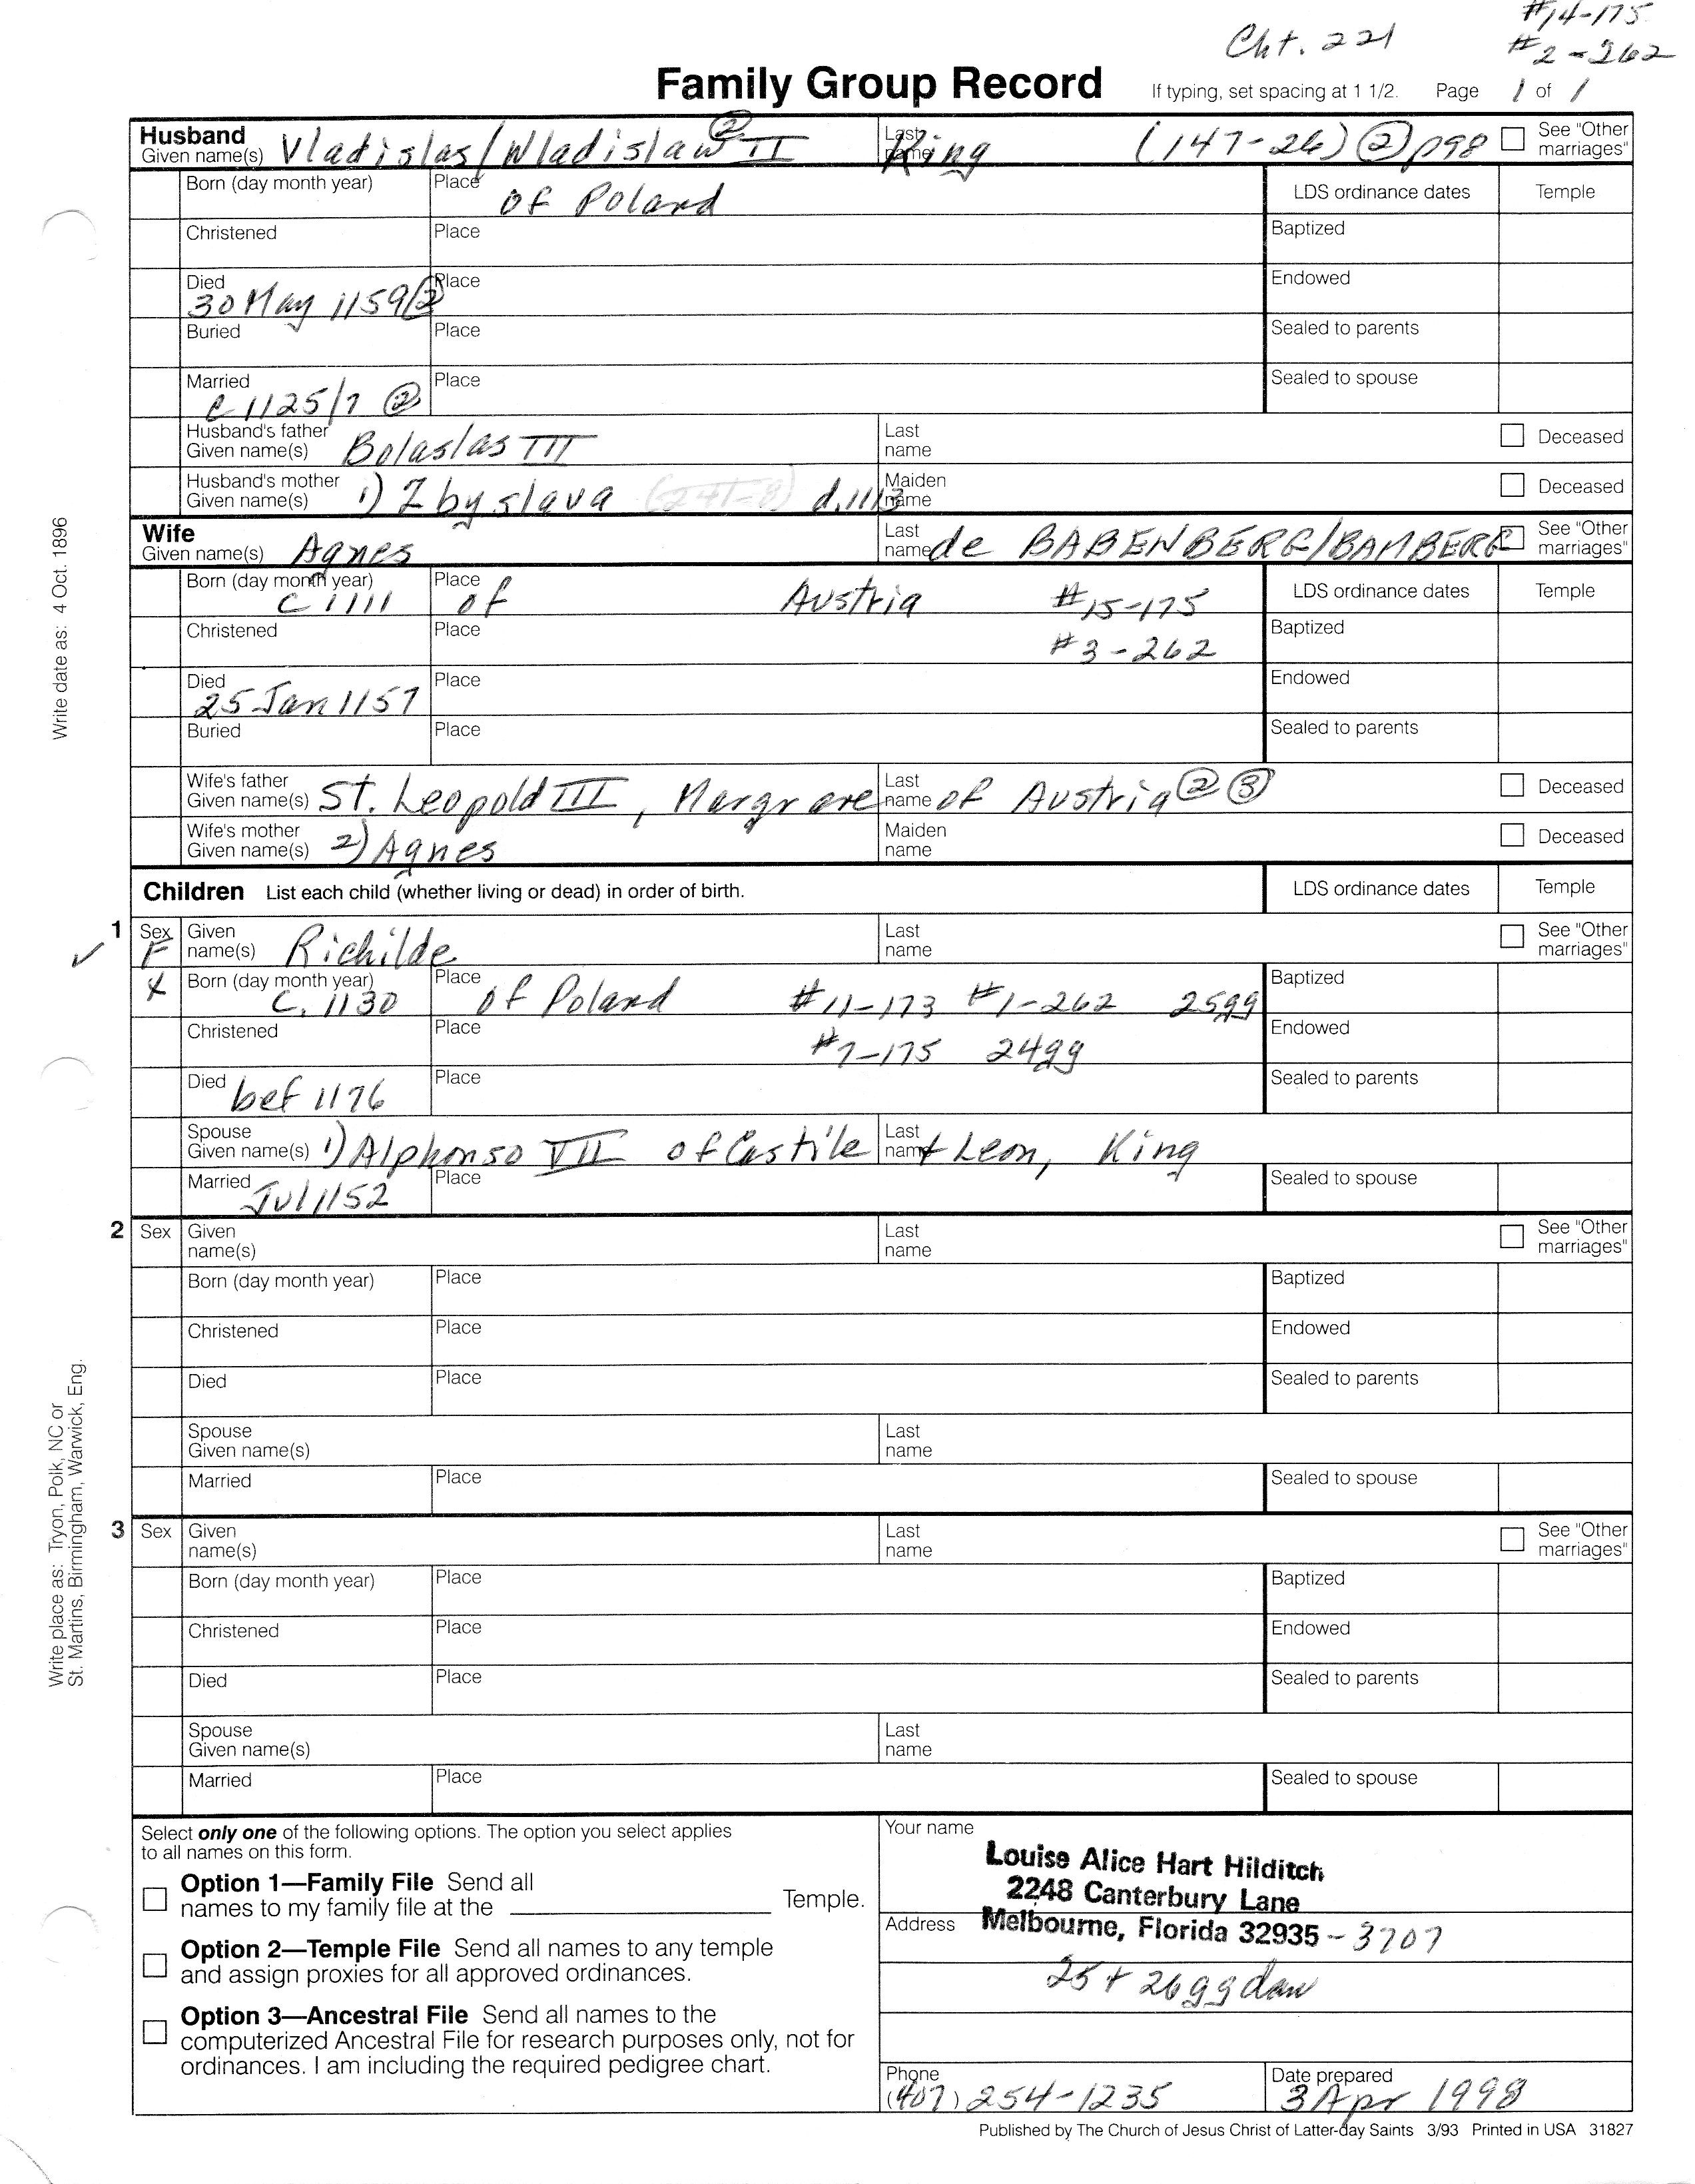 Cht. 221
#14-175
#2-262
Family Group Record If typing, set spacing at 1 1/2. Page 1 of 1
Husband
Given name(s) Vladislas/Wladislaw II ② Last name King (147-26) ② p98 See "Other marriages"
Born (day month year) Place of Poland LDS ordinance dates Temple
Christened Place Baptized
Died 30 May 1159 ② Place Endowed
Buried Place Sealed to parents
Married C 1125/7 ② Place Sealed to spouse
Husband's father Given name(s) Bolaslas III Last name Deceased
Husband's mother Given name(s) 1) Zbyslava (241-8) d. 1113 Maiden name Deceased
Wife
Given name(s) Agnes Last name de BABENBERG/BAMBERG See "Other marriages"
Born (day month year) C 1111 Place of Austria #15-175 LDS ordinance dates Temple
Christened Place #3-262 Baptized
Died 25 Jan 1157 Place Endowed
Buried Place Sealed to parents
Wife's father Given name(s) St. Leopold III, Margrave Last name of Austria ② ③ Deceased
Wife's mother Given name(s) 2) Agnes Maiden name Deceased
Children List each child (whether living or dead) in order of birth. LDS ordinance dates Temple
1 Sex F Given name(s) Richilde Last name See "Other marriages"
X Born (day month year) C. 1130 Place of Poland #11-173 #1-262 25gg Baptized
Christened Place #7-175 24gg Endowed
Died bef 1176 Place Sealed to parents
Spouse Given name(s) 1) Alphonso VII of Castile Last name + Leon, King
Married Jul 1152 Place Sealed to spouse
2 Sex Given name(s) Last name See "Other marriages"
Born (day month year) Place Baptized
Christened Place Endowed
Died Place Sealed to parents
Spouse Given name(s) Last name
Married Place Sealed to spouse
3 Sex Given name(s) Last name See "Other marriages"
Born (day month year) Place Baptized
Christened Place Endowed
Died Place Sealed to parents
Spouse Given name(s) Last name
Married Place Sealed to spouse
Select only one of the following options. The option you select applies
to all names on this form.
Option 1—Family File Send all
names to my family file at the Temple.
Option 2—Temple File Send all names to any temple
and assign proxies for all approved ordinances.
Option 3—Ancestral File Send all names to the
computerized Ancestral File for research purposes only, not for
ordinances. I am including the required pedigree chart.
Your name
Louise Alice Hart Hilditch
2248 Canterbury Lane
Address Melbourne, Florida 32935 - 3707
25 + 26 gg dau
Phone (407) 254-1235 Date prepared 3 Apr 1998
Published by The Church of Jesus Christ of Latter-day Saints 3/93 Printed in USA 31827
Write date as: 4 Oct. 1896
Write place as: Tryon, Polk, NC or
St. Martins, Birmingham, Warwick, Eng.